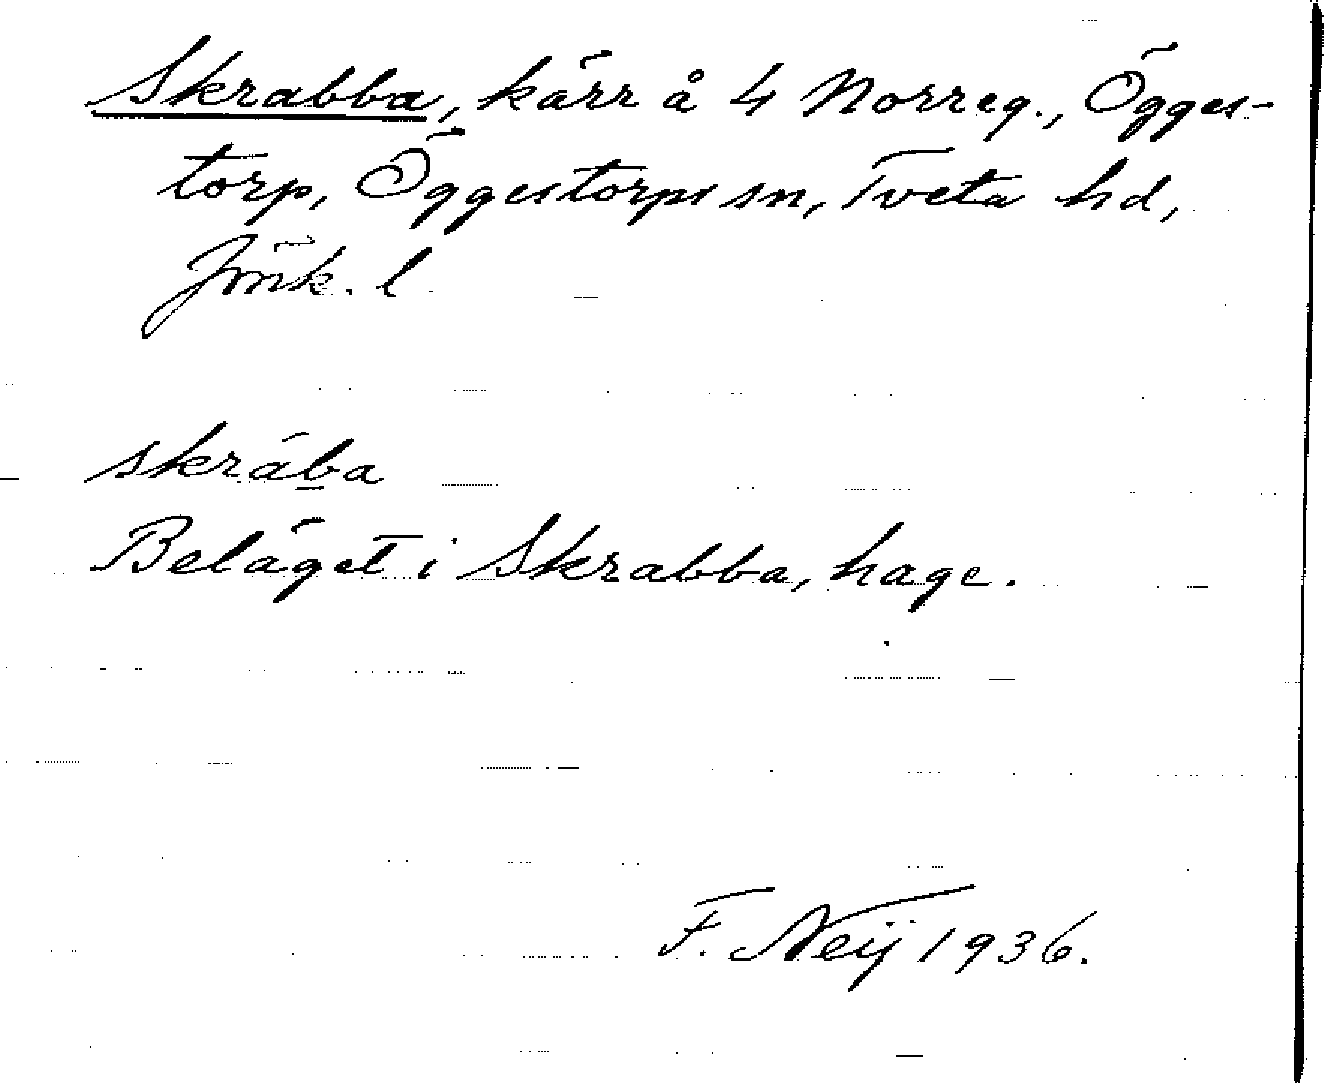 Skrabba, kärr å 4 Norreg., Ögges-
torp, Öggestorps sn, Tveta hd,
Jönk. l
skráb̲a
Beläget i Skrabba, hage.
F. Neij 1936.